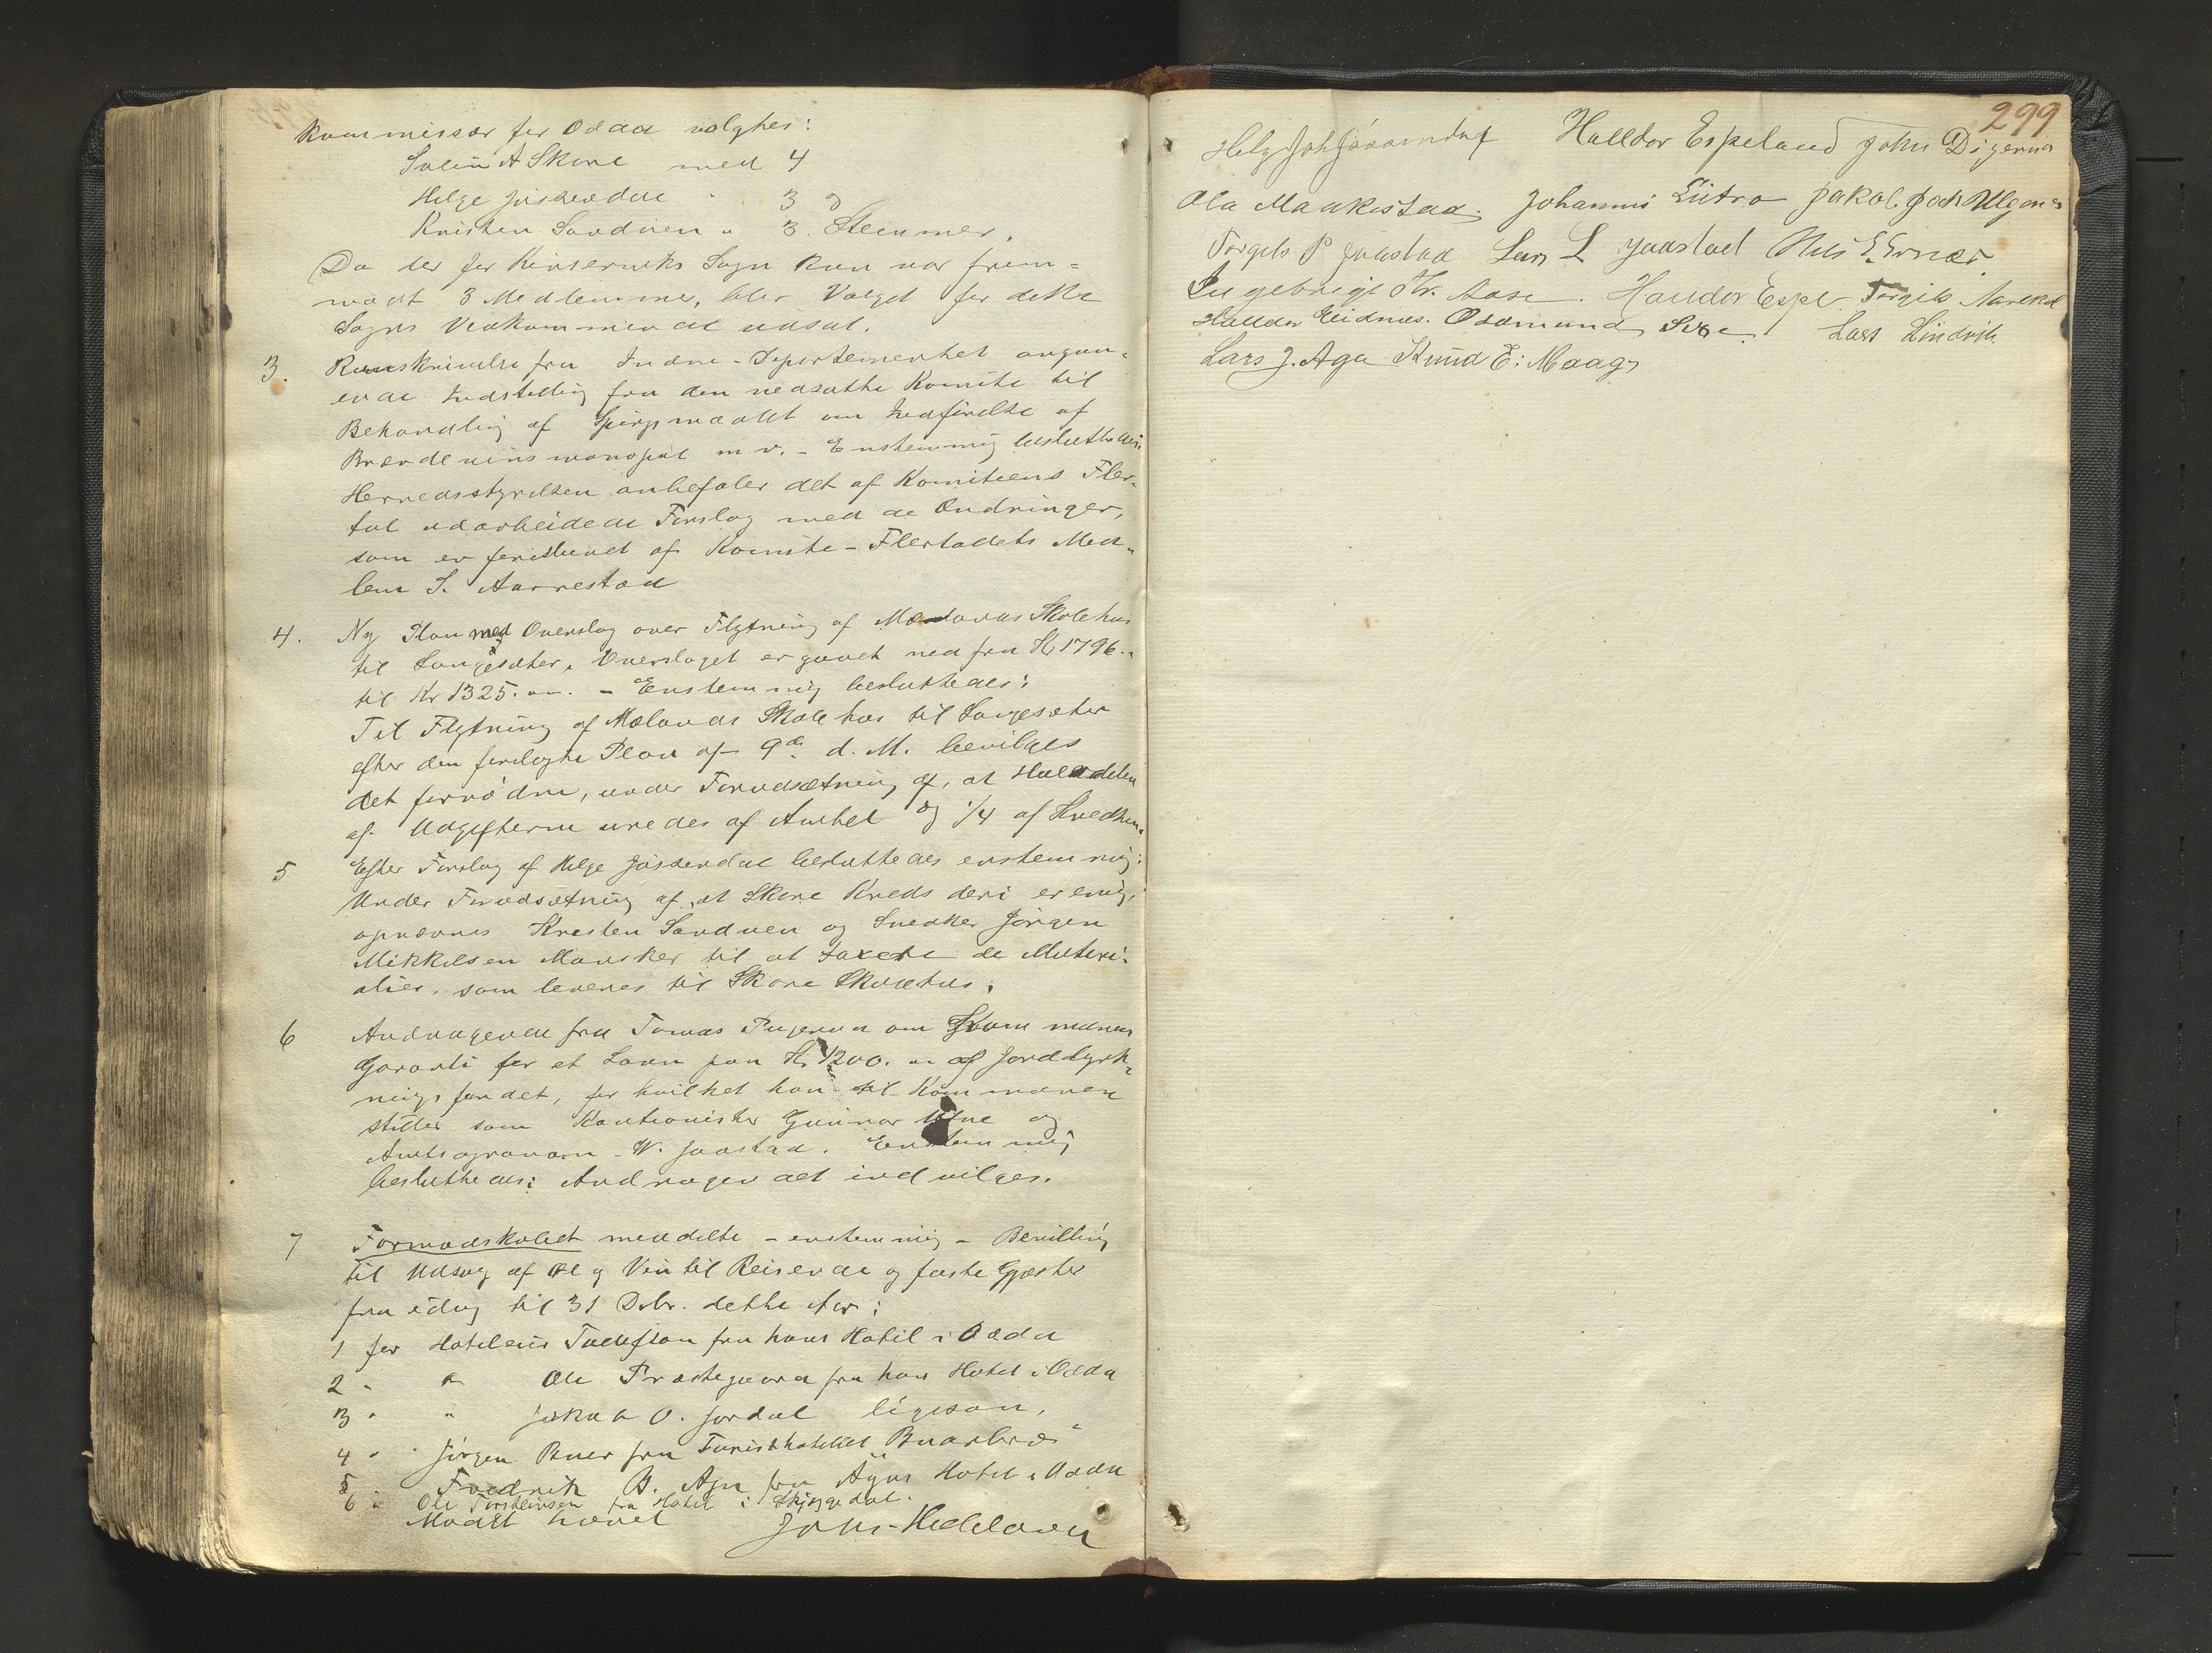 Kommissær for Odda valgtes:
Svein A Skare med 4
Helge Jøsendal " 3 og
Kristen Sandven " 3 Stemmer.
Da der for Kinserviks Sogn kun var frem=
mødt 3 Medlemmer, blev Valget for dette
Sogns Vedkommende udsat.
3. Rundskrivelse fra Indre-Departementet angaa-
ende Indstilling fra den nedsatte Komite til
Behandling af Spørgsmaalet om Indførelse af
Brændevinsmonopol m v. - Enstemmig besluttedes:
Herredsstyrelsen anbefaler det af Komiteens Fler-
tal udarbeidede Forslag med de Ændringer,
som er foreslaaet af Komite-Flertallets Med-
lem S. Aarrestad
4. Ny Plan med Overslag over Flytning af Mælands Skolehus
til Langesæter. Overslaget er gaaet ned fra Kr 1796.
til Kr 1325. - Enstemmig besluttedes:
Til Flytning af Mælands Skolehus til Langesæter
efter den forelagte Plan af 9de d. M. bevilges
det fornødne, under Forudsætning af, at Halvdelen
af Udgifterne uredes af Amtet og 1/4 af Kredsen.
5 Efter Forslag af Helge Jøsendal besluttedes enstemmig:
Under Forudsætning af, at Skare Kreds deri er enig,
opnævnes Kresten Sandven og Snedker Jørgen
Mikkelsen Mansker til at taxere de Materi-
alier, som leveres til Skare Skolehus.
6 Andragende fra Tomas om Kommunens
Garanti for et Laan paa Kr 1200. af Jorddyrk-
ningsfondet, for hvilket han til Kommunen
stiller som Kautionister Gunnar Utne og
Amtsagronom W. Jaastad. Enstemmig
besluttedes: Andragendet indvilges.
7 Formandskabet meddelte - enstemmig - Bevilling
til Udsalg af Øl og Vin til Reisende og faste Gjæster
fra idag til 31 Debr. dette Aar:
1 for Hoteleier Tollefson fra hans Hotel i Odda
2 " " Ole Præstegaard fra hans Hotel i Odda
3 " " Jakob O. Jordal ligesaa.
4 " Jørgen Buer fra Turisthotellet "Buarbræ"
5 " Fredrik B. Aga fra Agas Hotel i Odda
6 " Ole Torsteinsen fra Hotel i Skjæggedal.
Mødet hævet Johs. Helleland
299
Helge Joh Jøsendal Halldor Espeland John Digernes
Ola Maakestad. Johannes Lutro Jakob Joh Ulgenes
Torgils P Jaastad Lars L Jaastad Nils E. Ernes
Ingebrigt Hr. Aase. Haldor Espe Torgils Aarekol
Halldor Eidnes. Odmund Sexe. Lars Lindvik
Lars J. Aga Knud E: Maage